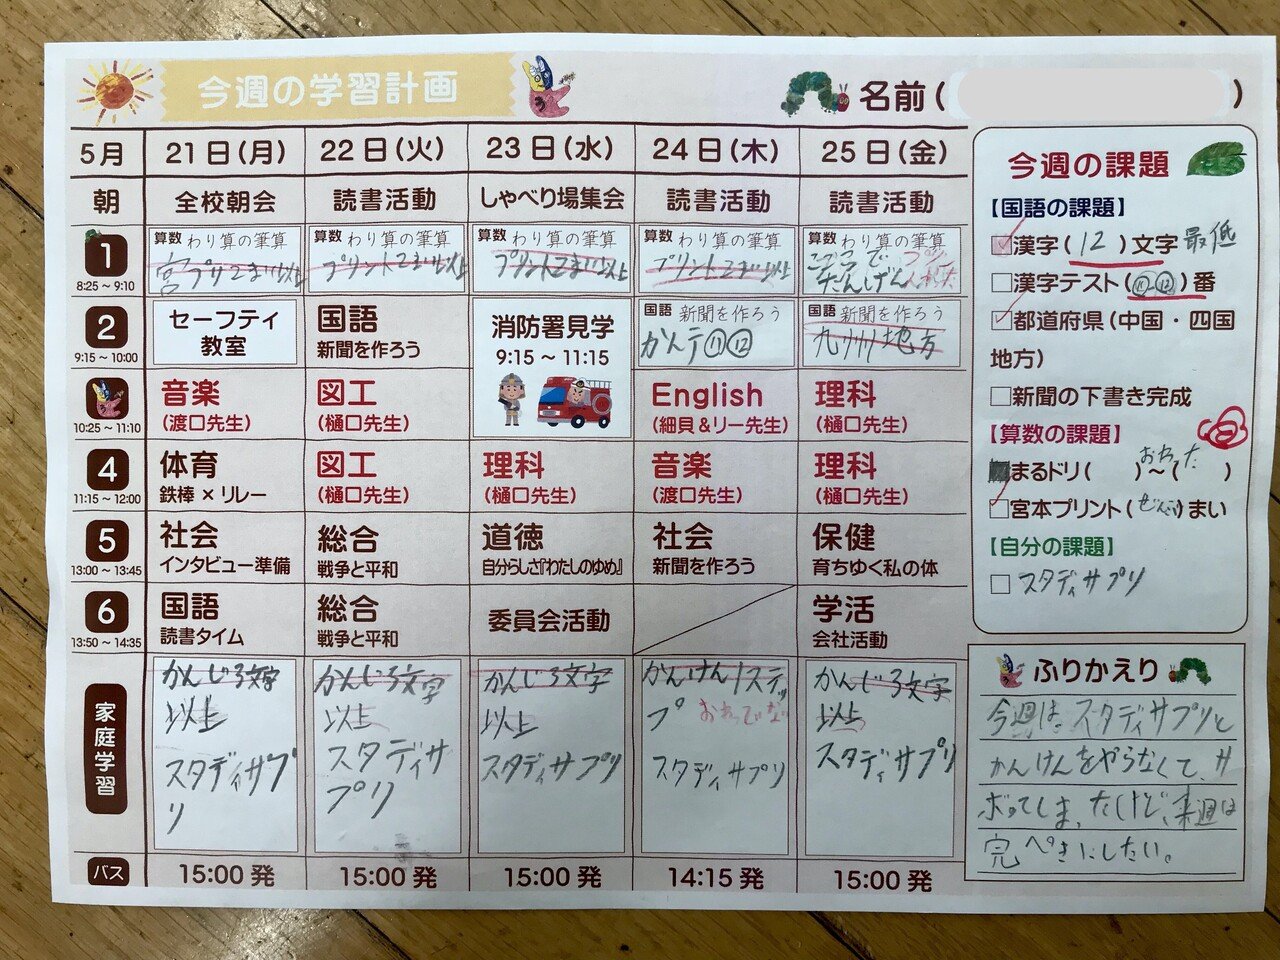 今週の学習計画
名前( )
5月 21日(月) 22日(火) 23日(水) 24日(木) 25日(金)
朝 全校朝会 読書活動 しゃべり場集会 読書活動 読書活動
1 算数 わり算の筆算 算数 わり算の筆算 算数 わり算の筆算 算数 わり算の筆算 算数 わり算の筆算
8:25~9:10 宮プリ2まい以上 プリント2まい以上 プリント2まい以上 プリント2まい以上
2 セーフティ 国語 消防署見学 国語 新聞を作ろう 国語 新聞を作ろう
9:15~10:00 教室 新聞を作ろう 9:15~11:15 かんテ⑪⑫ 九州地方
音楽 図工 English 理科
10:25~11:10 (渡口先生) (樋口先生) (細貝&リー先生) (樋口先生)
4 体育 図工 理科 音楽 理科
11:15~12:00 鉄棒×リレー (樋口先生) (樋口先生) (渡口先生) (樋口先生)
5 社会 総合 道徳 社会 保健
13:00~13:45 インタビュー準備 戦争と平和 自分らしさ『わたしのゆめ』 新聞を作ろう 育ちゆく私の体
6 国語 総合 委員会活動 学活
13:50~14:35 読書タイム 戦争と平和 会社活動
家庭学習
かんじ3文字
以上
スタディサプ
リ
かんじ3文字
以上
スタディサ
プリ
かんじ3文字
以上
スタディサプリ
かんけん1ステッ
プ
スタディサプリ
かんじ3文字
以上
スタディサプリ
バス 15:00発 15:00発 15:00発 14:15発 15:00発
今週の課題
【国語の課題】
漢字(12)文字 最低
漢字テスト(⑪⑫)番
都道府県(中国・四国
地方)
新聞の下書き完成
【算数の課題】
まるドリ( )~( ) おわった
宮本プリント( )まい
【自分の課題】
スタディサプリ
ふりかえり
今週は、スタディサプリと
かんけんをやらなくて、サ
ボってしまったけど、来週は
完ぺきにしたい。